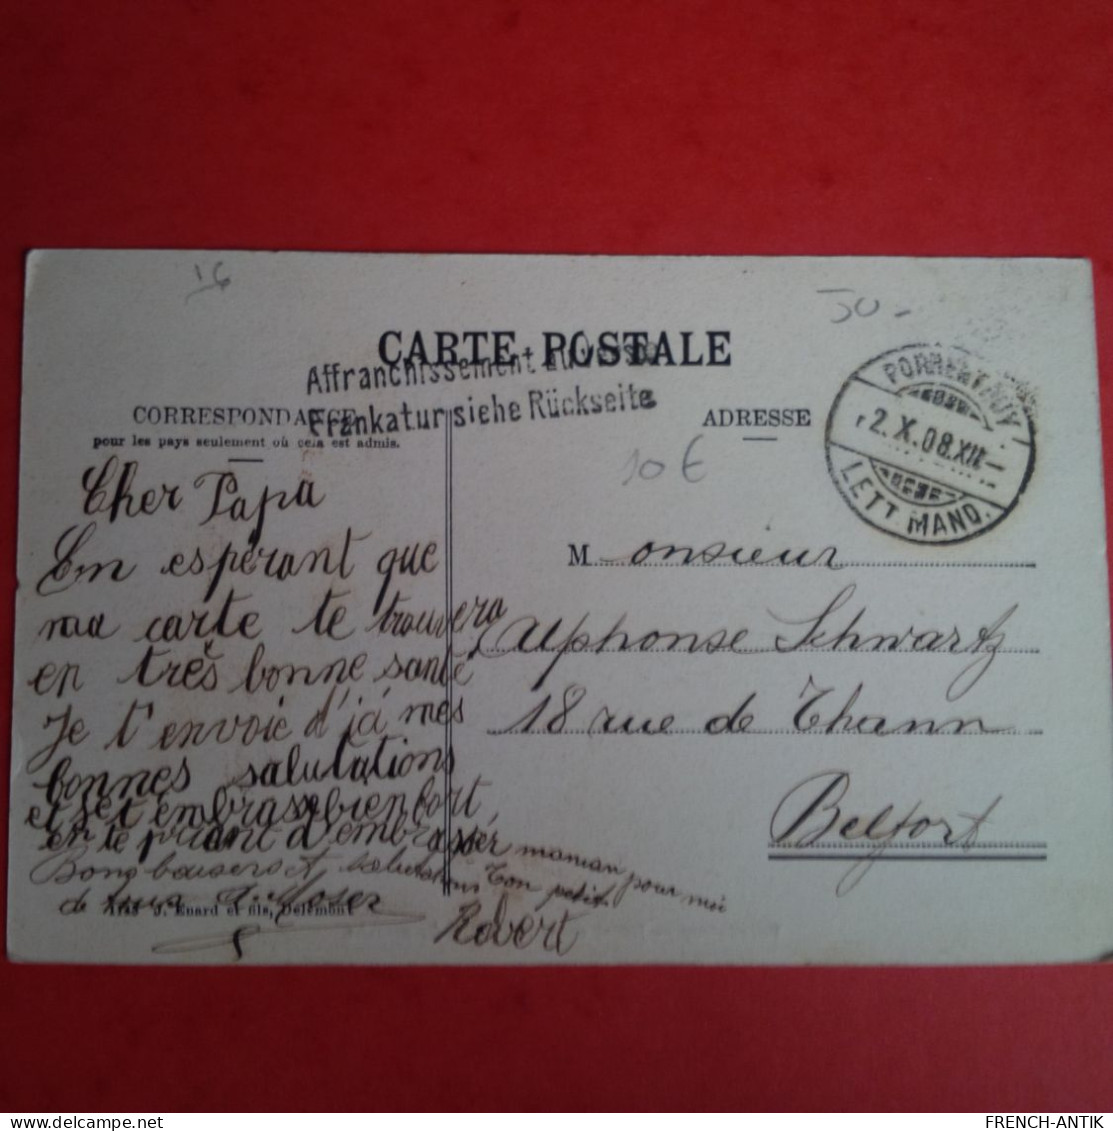 16
50 -
CARTE POSTALE
Affranchissement au verso
Frankatur siehe Rückseite
CORRESPONDANCE
pour les pays seulement où cela est admis.
ADRESSE
PORRENTRUY
2.X.08.XII
LETT MAND.
10 €
Cher Papa
En espérant que
ma carte te trouvera
en très bonne santé
Je t'envoie d'ici mes
bonnes salutations
et set embrasse bien fort
en te priant d'embrasser maman pour moi
Bons baisers et salutations
de
Ton petit
Robert
M onsieur
Alphonse Schwartz
18 rue de Thann
Belfort
J. Enard et fils, Delémont
FRENCH-ANTIK